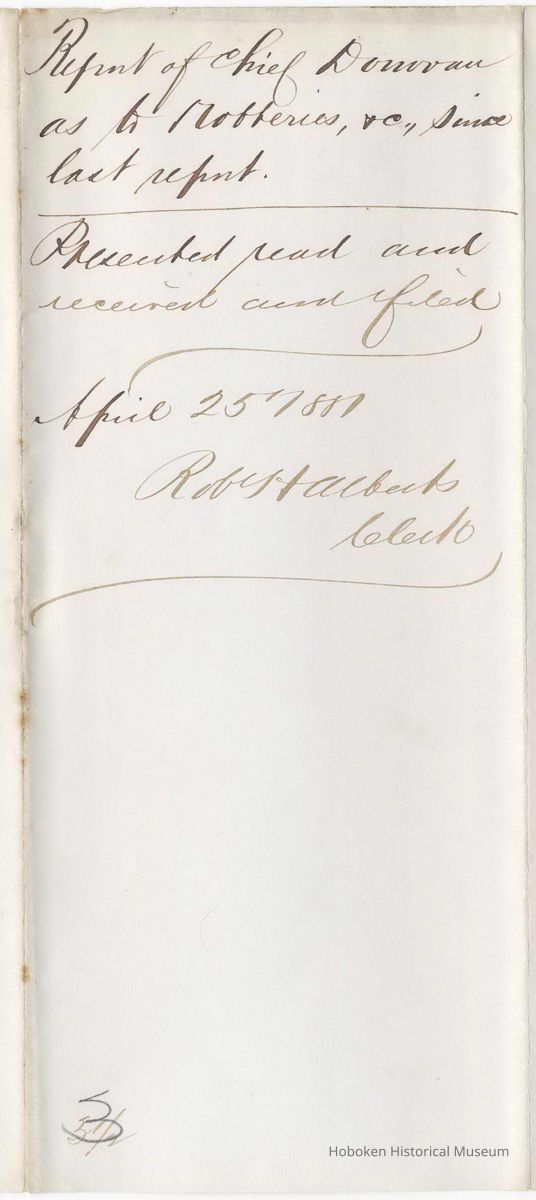 Report of Chief Donovan
as to Robberies, &c., since
last report.
Presented read and
received and filed
April 25" 1881
Robt H Alberts
Clerk
Hoboken Historical Museum